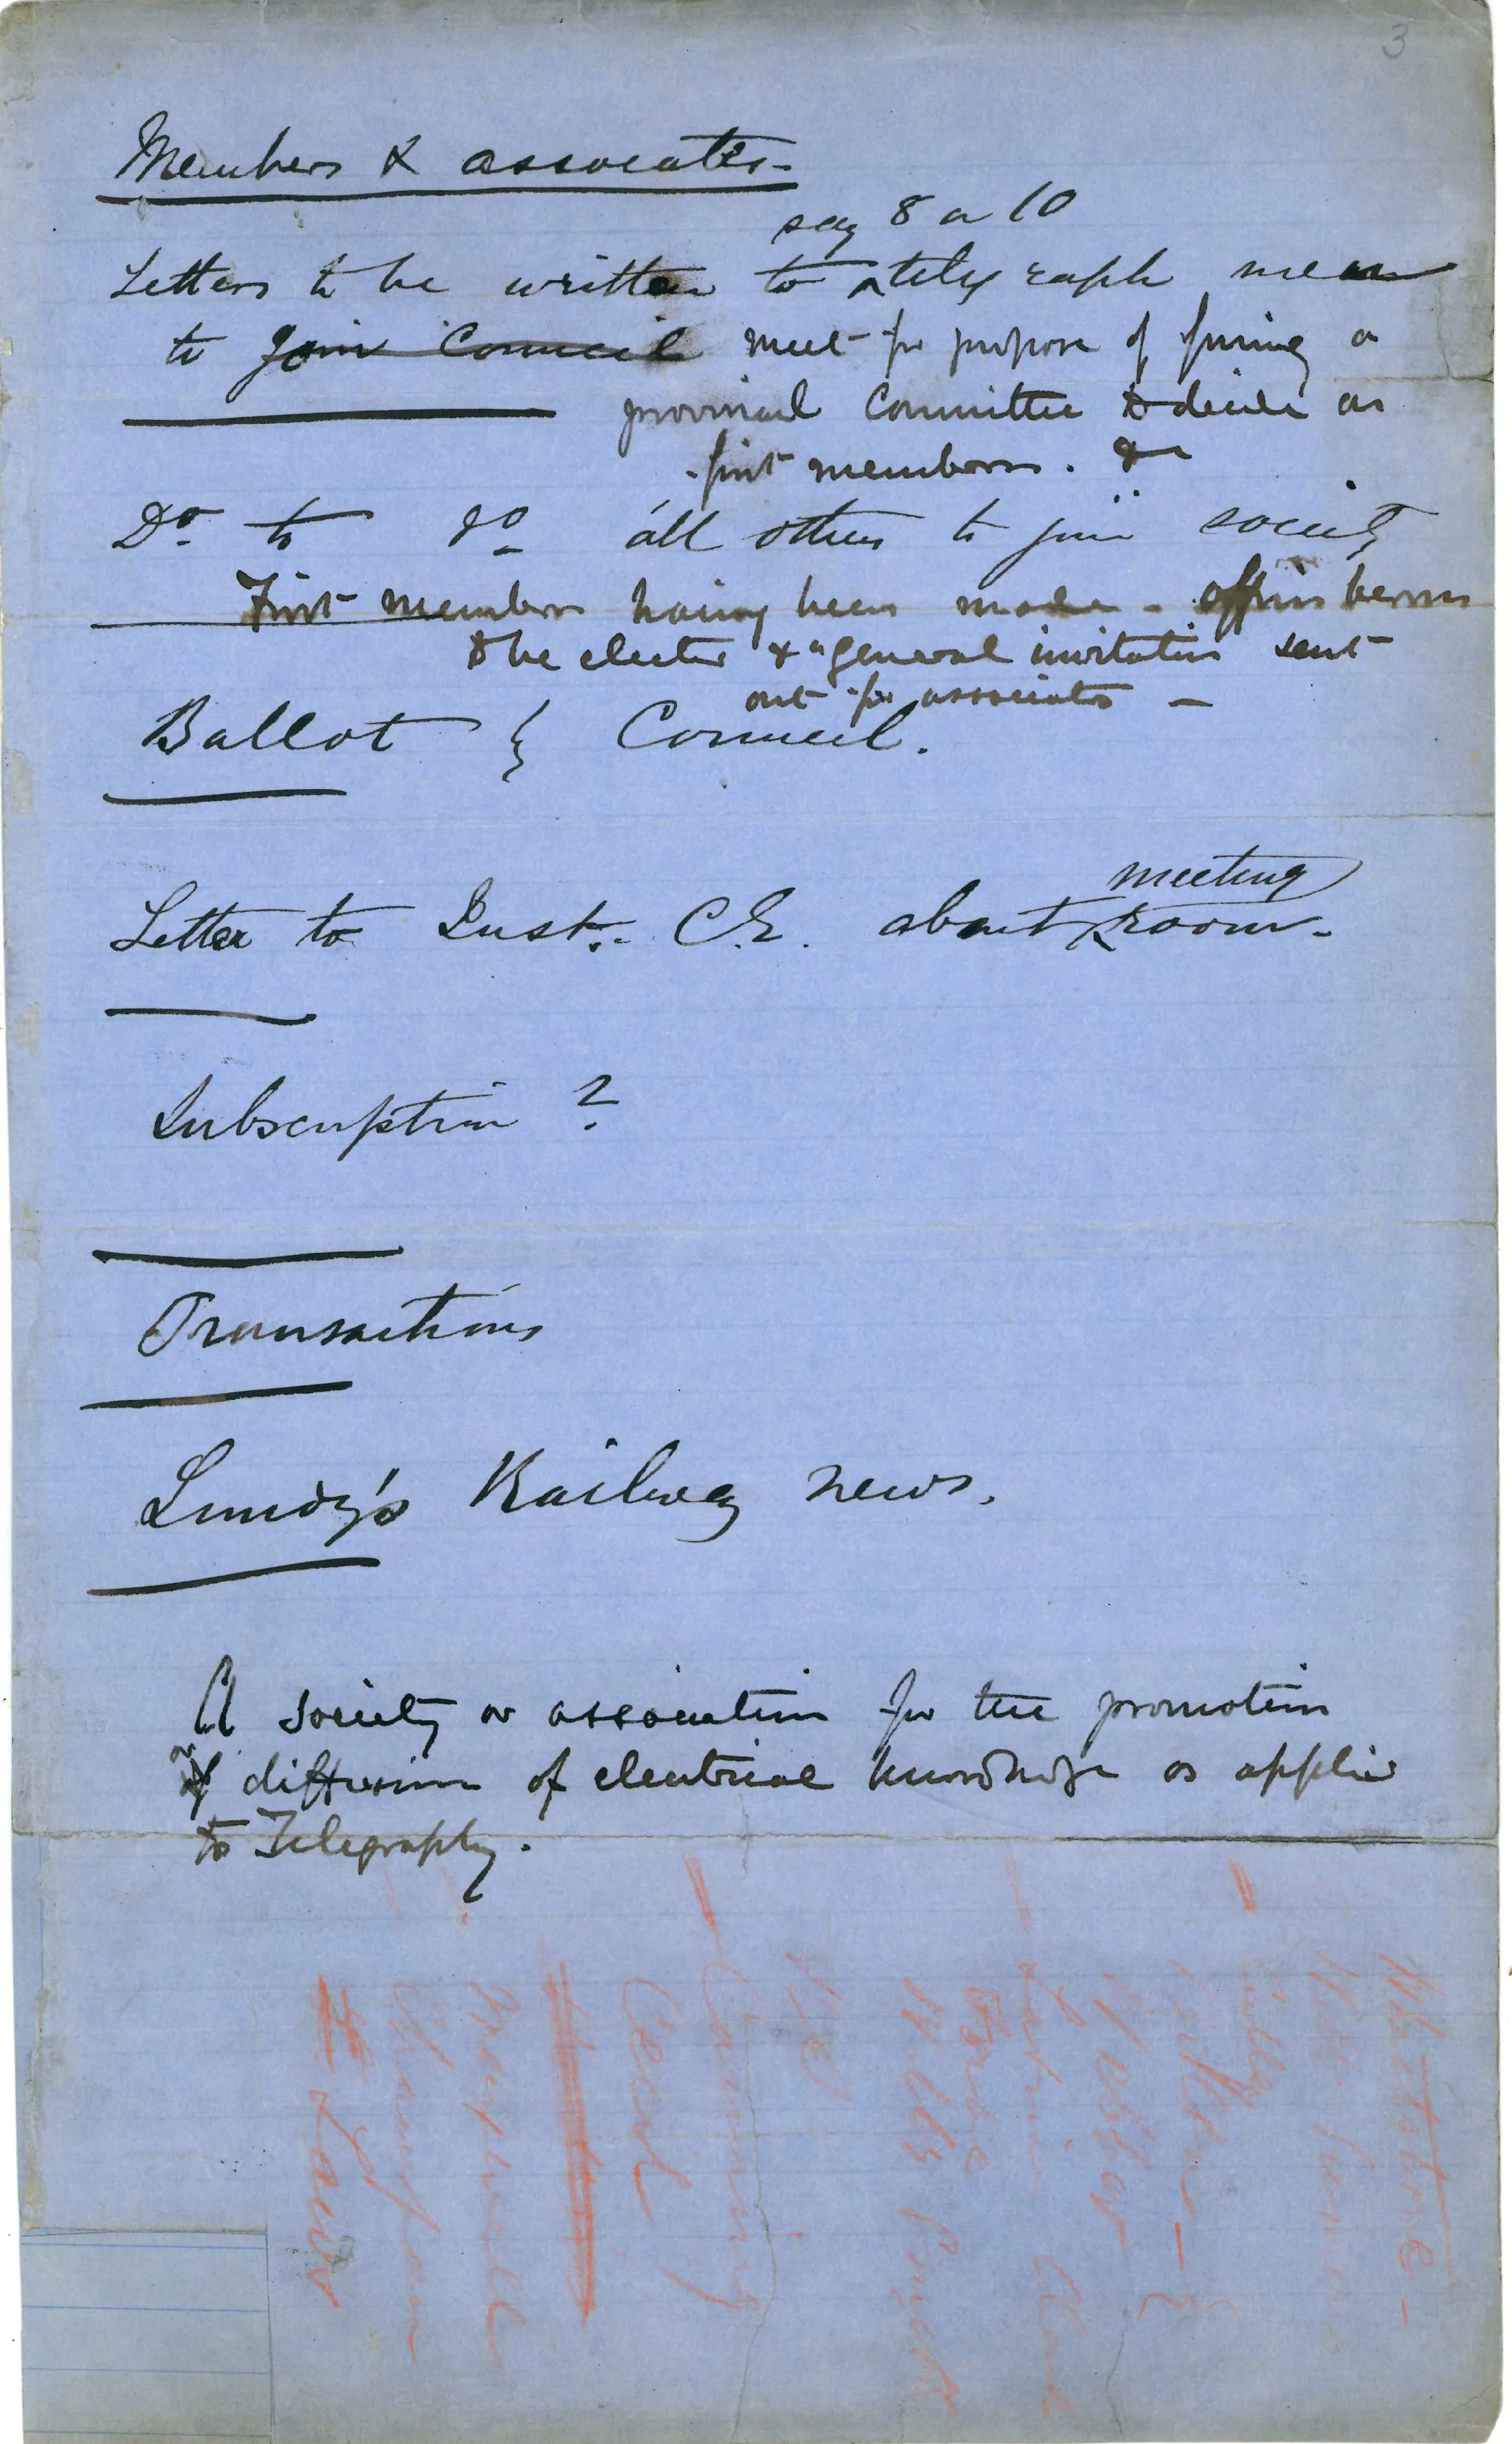 3
Members & associates -
say 8 or 10
Letters to be written to ^ telegraph men
to join Council meet for purpose of forming a
provincial Committee to decide on
first members. &c
Do. to do. all others to join society
First members having been made - office bearers
to be elected & a general invitation sent
out for associates -
Ballot } Council.
meeting
Letter to Inst. C.E. about ^ room -
Subscription ?
Transactions
Lundy's Railway news.
A society or association for the promotion
or diffusion of electrical knowledge as applied
to Telegraphy.
Whetstone -
Culley
Webber
Latimer Clark
Ford
Willoughby Smith
Canning
Cecil
Maxwell
Champain
Laws